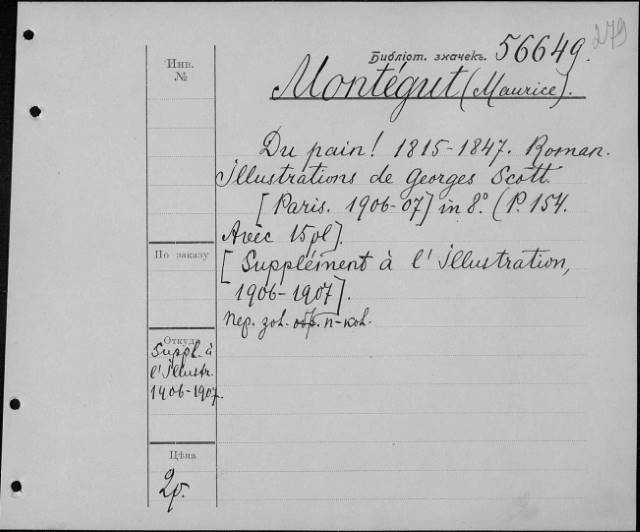 279
Библіот. значекъ. 56649.
Инв.
№
Montégut (Maurice).
Du pain! 1815-1847. Roman.
Illustrations de Georges Scott.
[Paris. 1906-07] in 8°. (P. 154.
Avec 15 pl].
[Supplément à l'Illustration,
1906-1907].
Пер. зол. обр. п-кол.
По заказу
Откуда
Suppl. à
l'Illustr.
1906-1907.
Цѣна
2р.